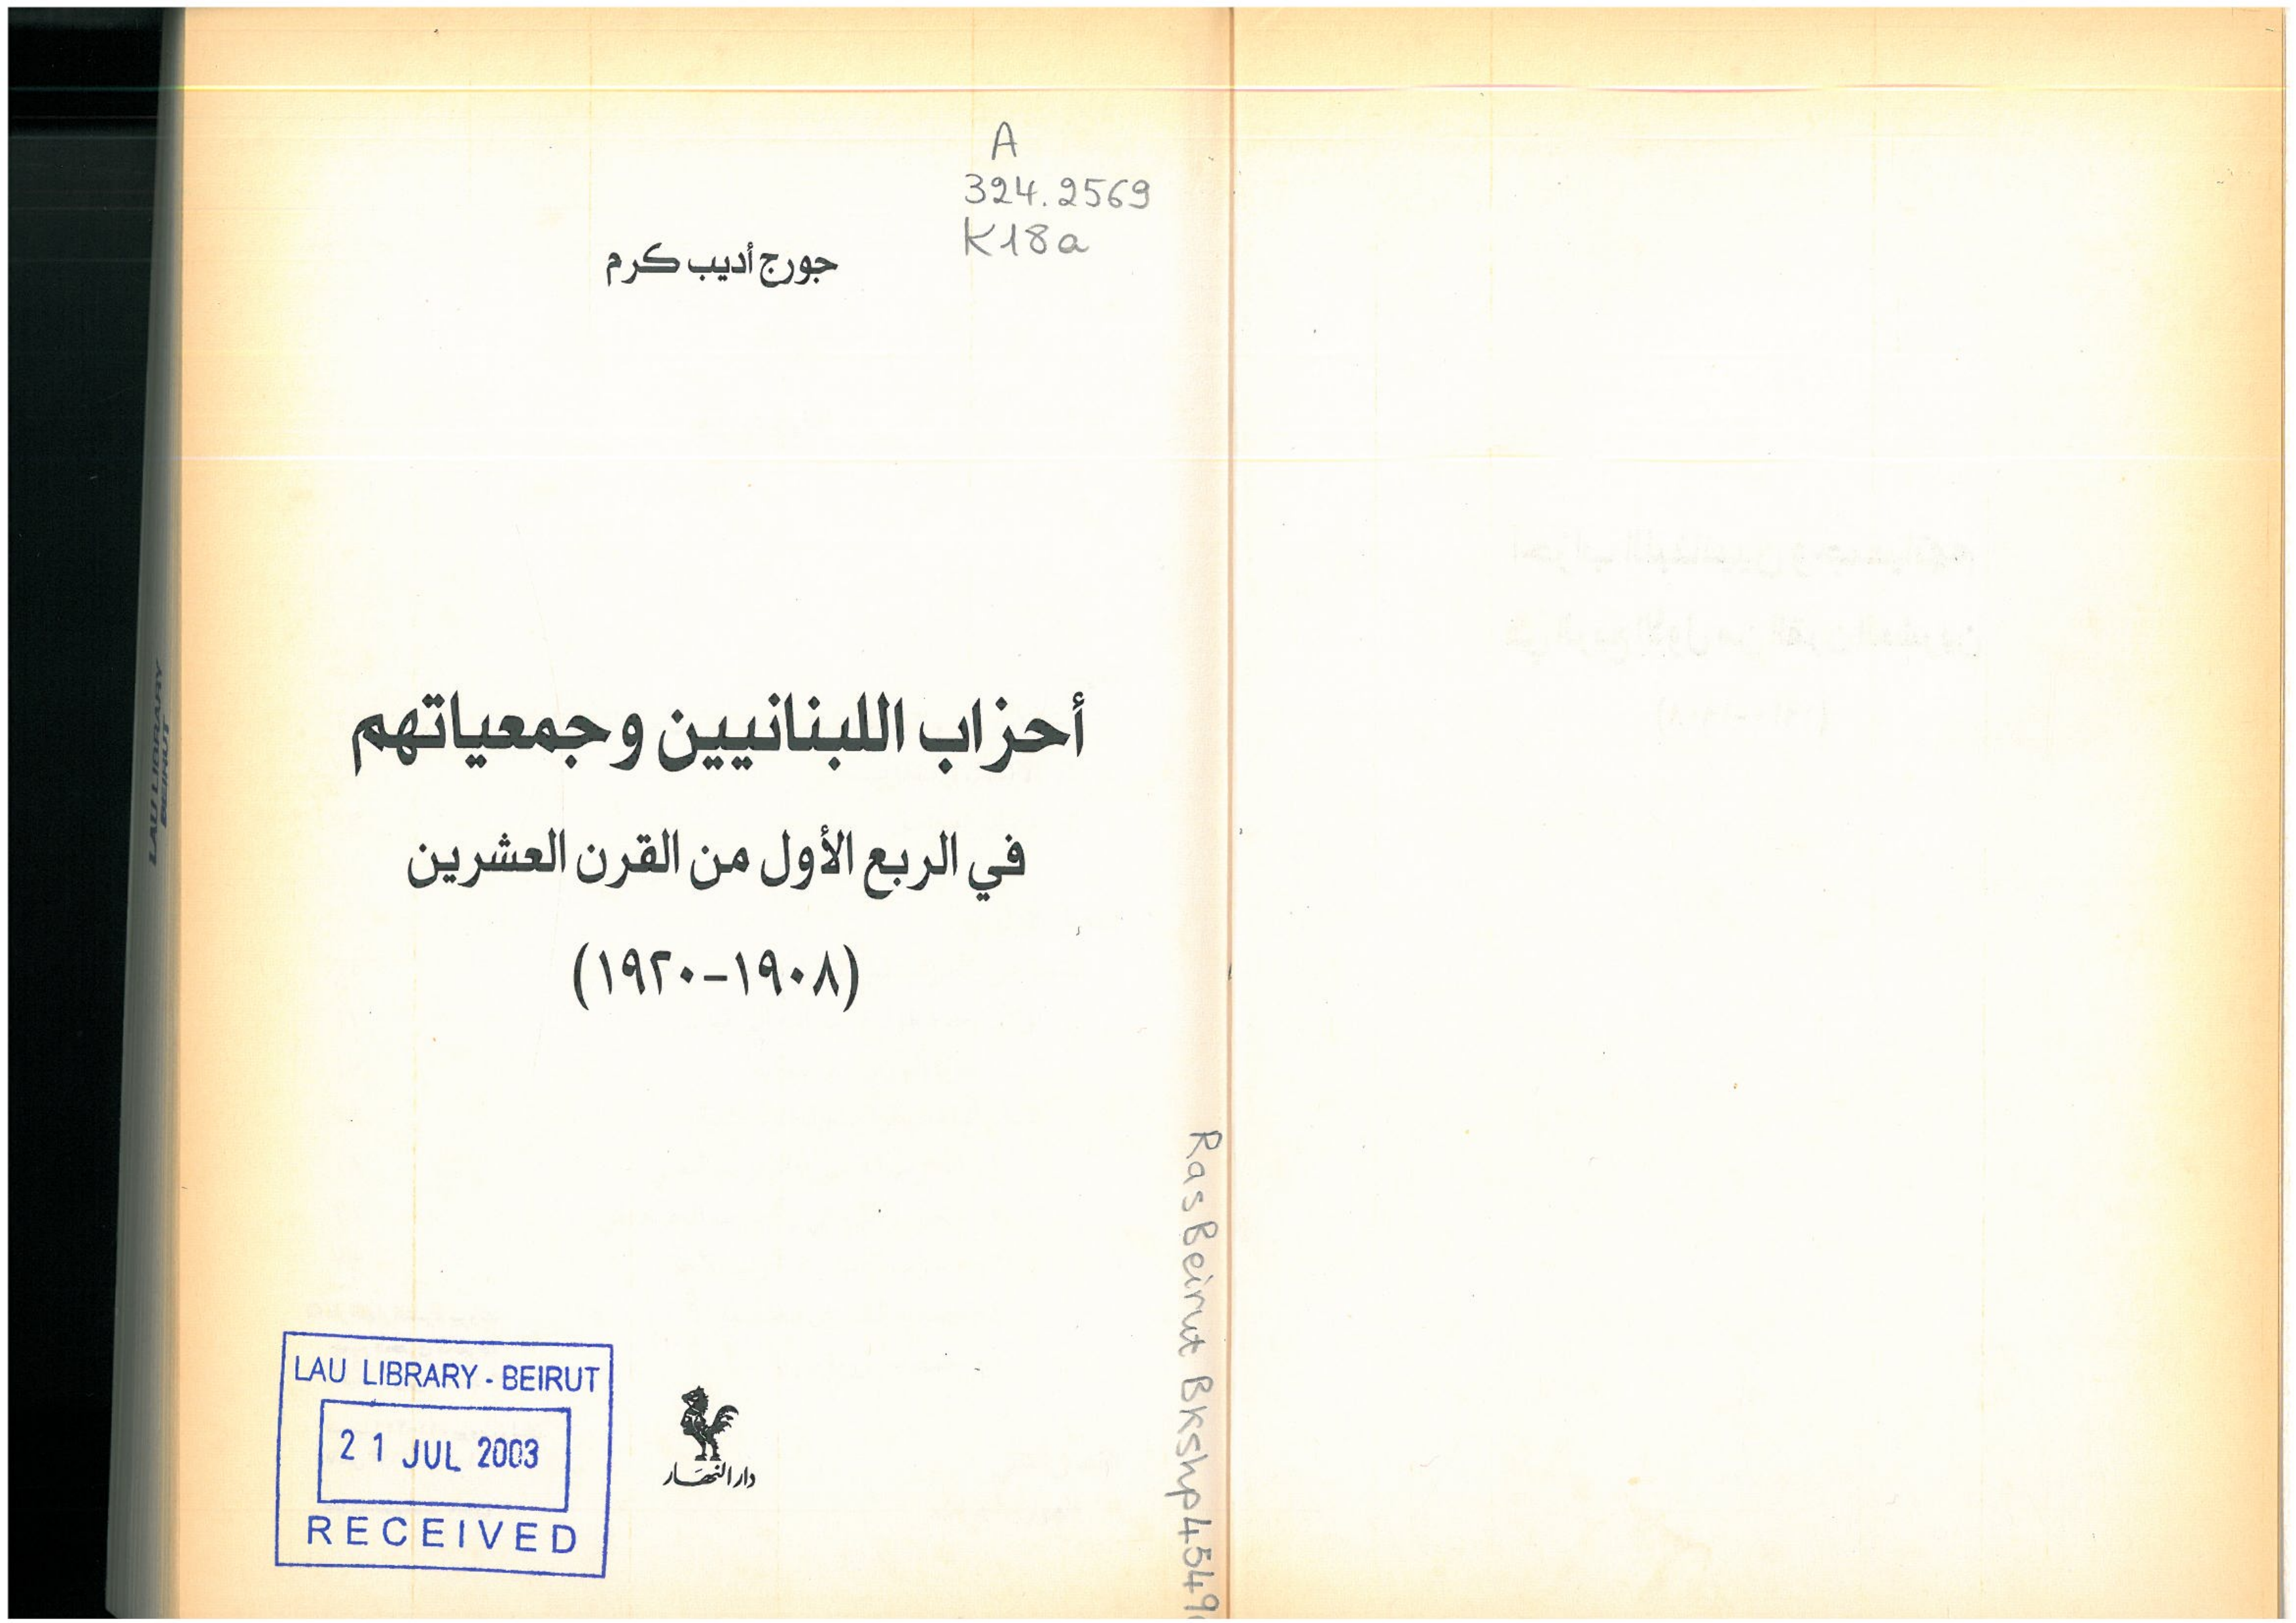 A
324.2569
K18a
جورج أديب كرم
أحزاب اللبنانيين وجمعياتهم
في الربع الأول من القرن العشرين
(١٩٠٨-١٩٢٠)
LAU LIBRARY - BEIRUT
21 JUL 2003
RECEIVED
دار النهار
Ras Beirut Bkshp 4549
LAU LIBRARY
BEIRUT